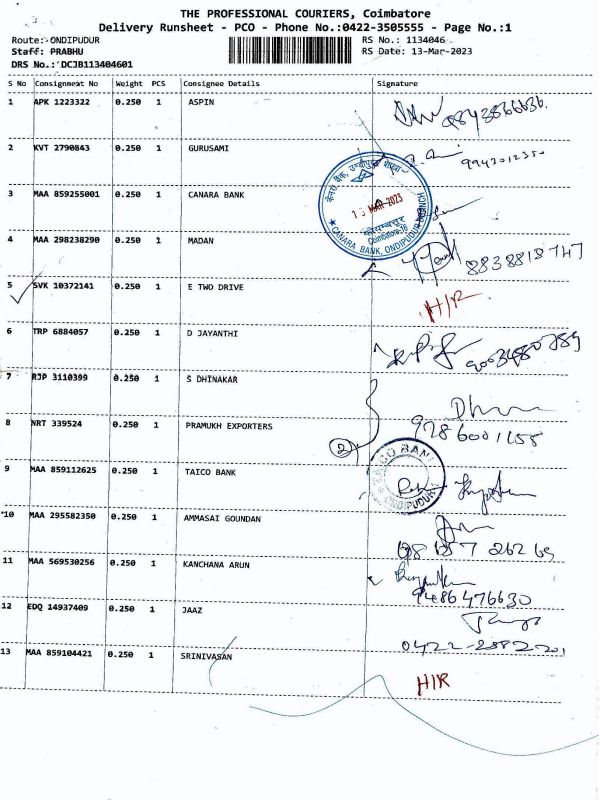 THE PROFESSIONAL COURIERS, Coimbatore
Delivery Runsheet - PCO - Phone No.:0422-3505555 - Page No.:1
Route: ONDIPUDUR RS No.: 1134046
Staff: PRABHU RS Date: 13-Mar-2023
DRS No.: DCJB113404601
S No Consignment No Weight PCS Consignee Details Signature
1 APK 1223322 0.250 1 ASPIN
2 KVT 2790843 0.250 1 GURUSAMI
केनरा बैंक,
13 MAR 2023
कोयम्बत्तूर
Coimbatore
★ CANARA BANK, ONDIPUDUR BRANCH
3 MAA 859255001 0.250 1 CANARA BANK
4 MAA 298238290 0.250 1 MADAN
8838818747
5 SVK 10372141 0.250 1 E TWO DRIVE H/R
6 TRP 6884057 0.250 1 D JAYANTHI
9003480789
7 RJP 3110399 0.250 1 S DHINAKAR
8 NRT 339524 0.250 1 PRAMUKH EXPORTERS
9286001155
2
9 MAA 859112625 0.250 1 TAICO BANK
TAICO BANK
ONDIPUDUR
10 MAA 295582350 0.250 1 AMMASAI GOUNDAN
11 MAA 569530256 0.250 1 KANCHANA ARUN
9486476630
12 EDQ 14937409 0.250 1 JAAZ
13 MAA 859104421 0.250 1 SRINIVASAN
H/R